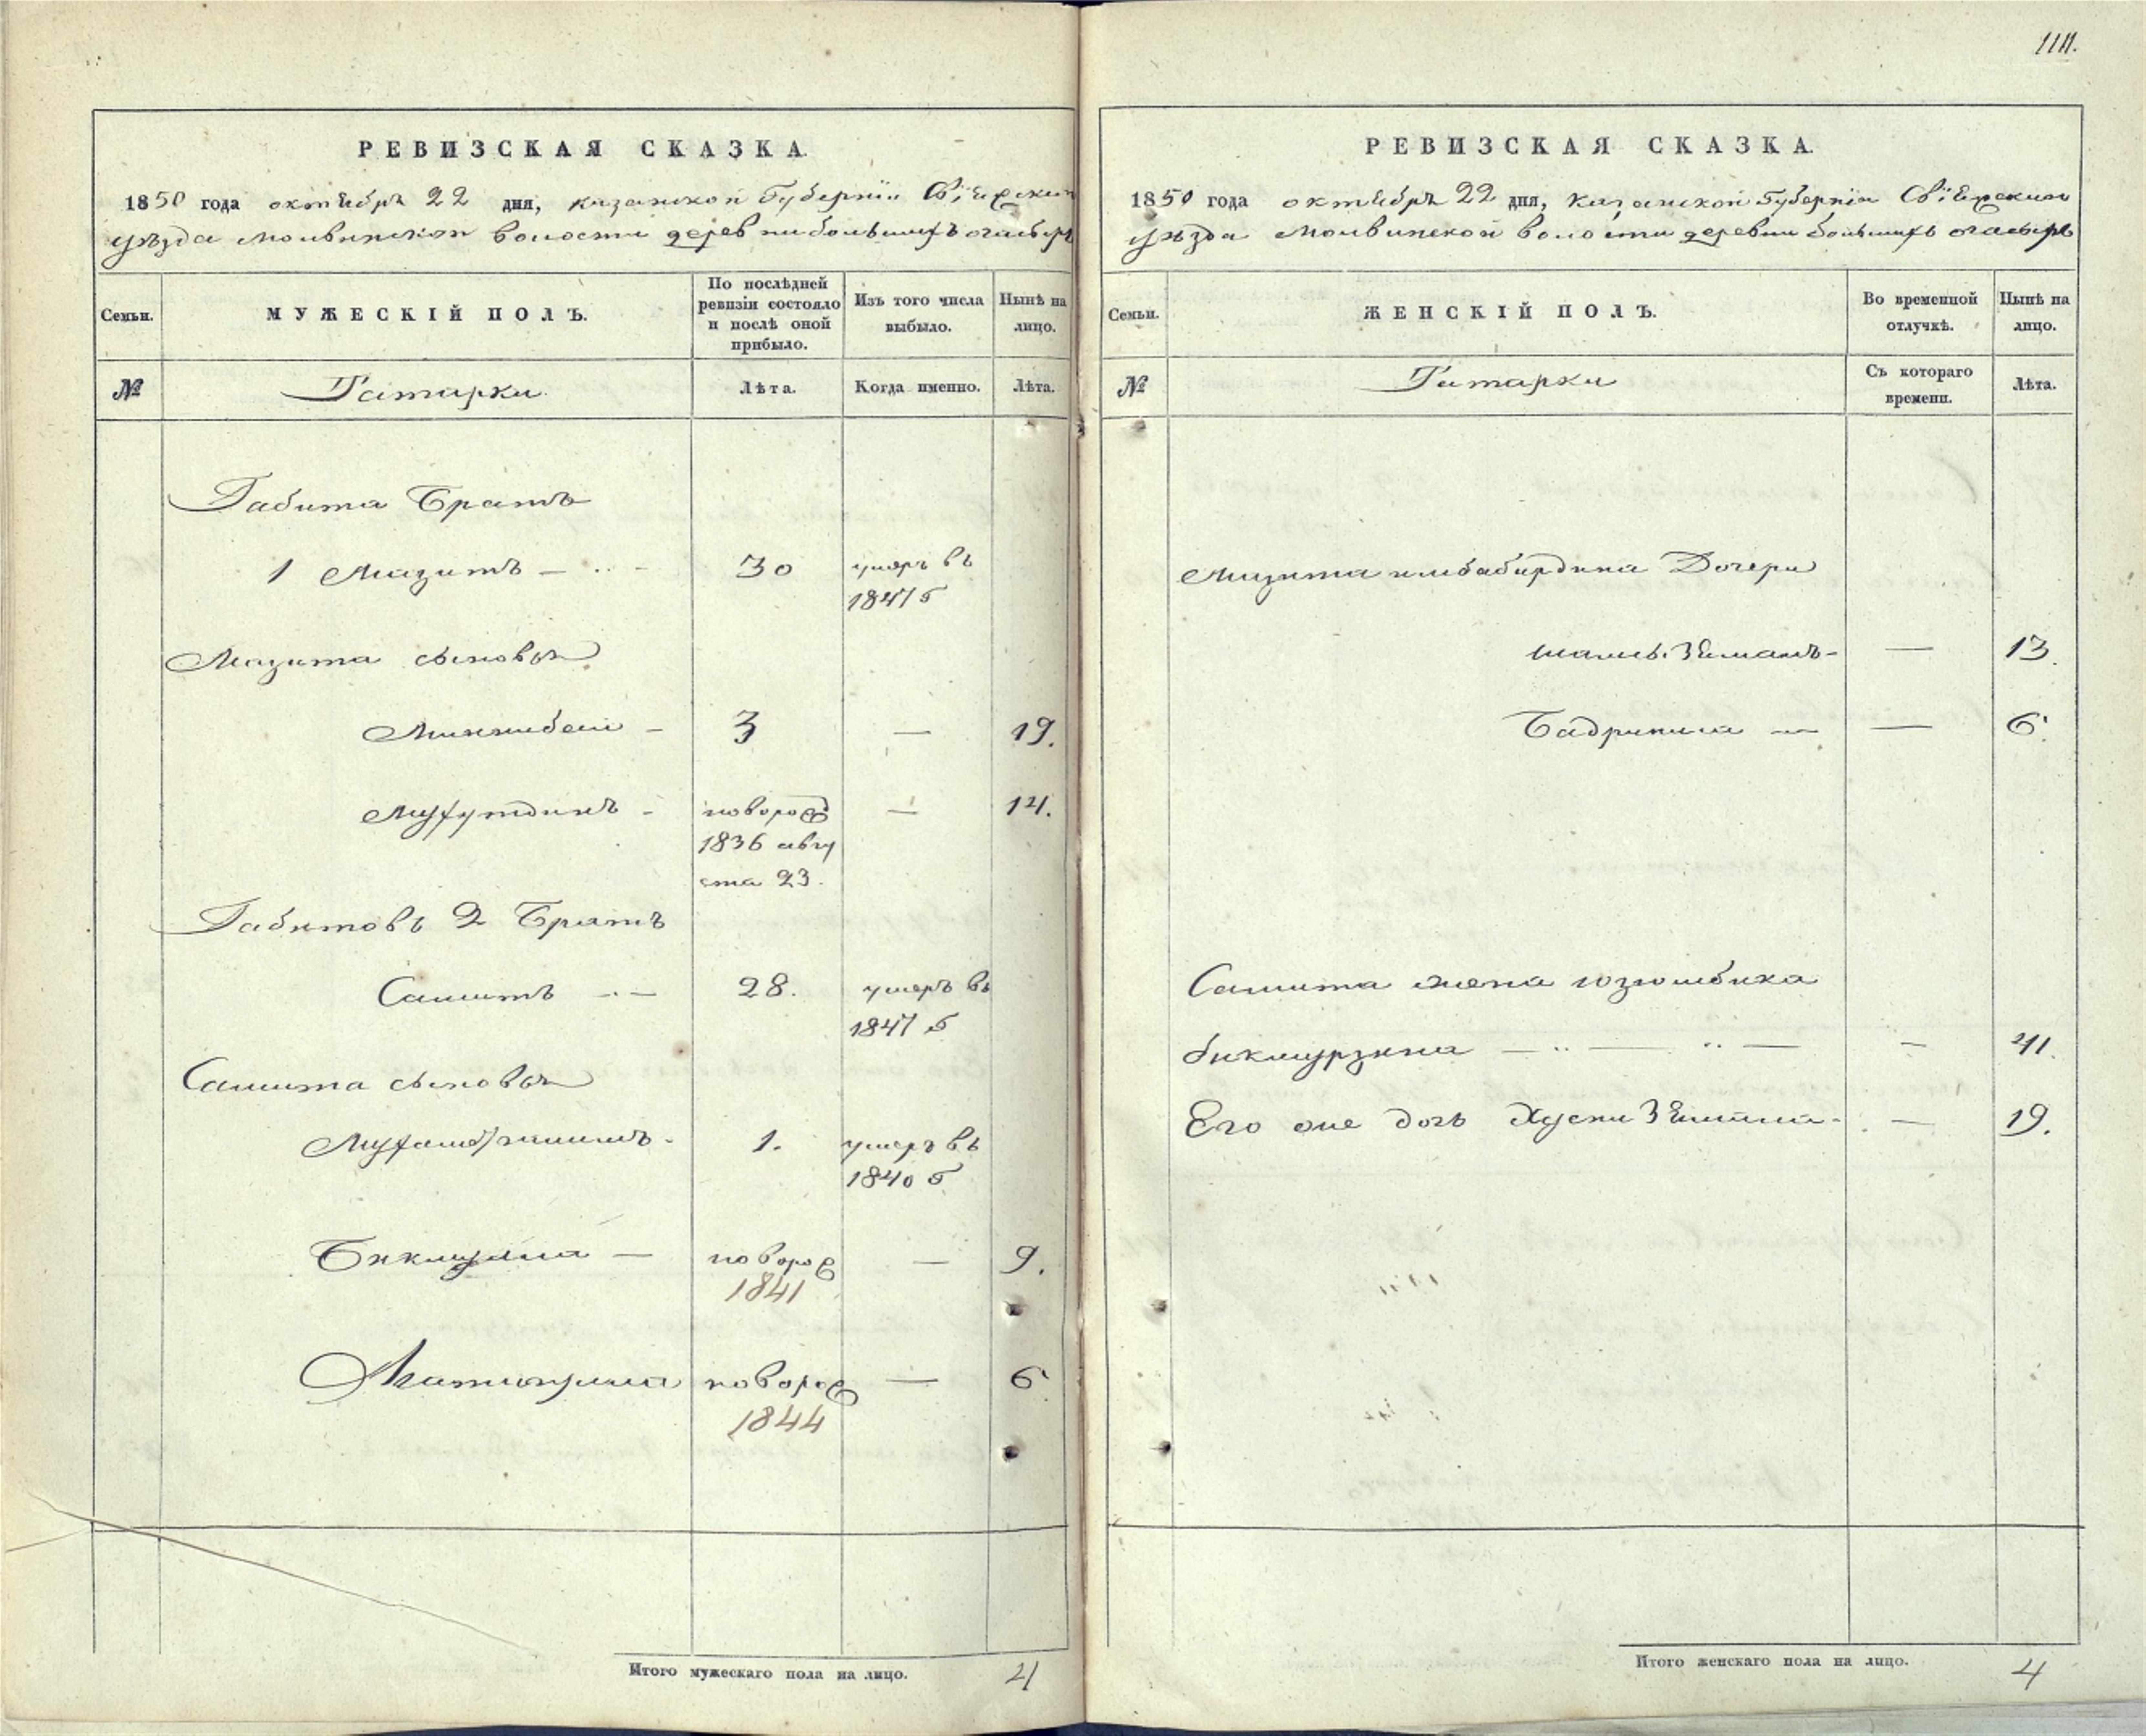 1111.
РЕВИЗСКАЯ СКАЗКА.
1850 года октября 22 дня, казанской Губернiи Свiяжскаго
уѣзда молвинской волости деревни большихъ
Семьи.
МУЖЕСКІЙ ПОЛЪ.
По послѣдней ревизіи состояло и послѣ оной прибыло.
Изъ того числа выбыло.
Нынѣ на лицо.
№
Татарки.
Лѣта.
Когда именно.
Лѣта.
Габита братъ
1 Мазитъ 30 умеръ въ
1847 г
Мазита сыновья
Миннибай 3 — 19.
новорож — 14.
1836 авгу
ста 23.
Габитовъ 2 братъ
Самитъ — 28. умеръ въ
1847 г
Самита сыновья
1. умеръ въ
1840 г
— новорож — 9.
1841
новорож — 6
1844
Итого мужескаго пола на лицо. 4
РЕВИЗСКАЯ СКАЗКА.
1850 года октября 22 дня, казанской Губернiи Свiяжскаго
уѣзда молвинской волости деревни большихъ
Семьи.
ЖЕНСКІЙ ПОЛЪ.
Во временной отлучкѣ.
Нынѣ на лицо.
№
Татарки
Съ котораго времени.
Лѣта.
Мазита Дочери
— 13.
— 6.
Самита жена
бикмурзина — — — 41.
Его же дочь — 19.
Итого женскаго пола на лицо. 4